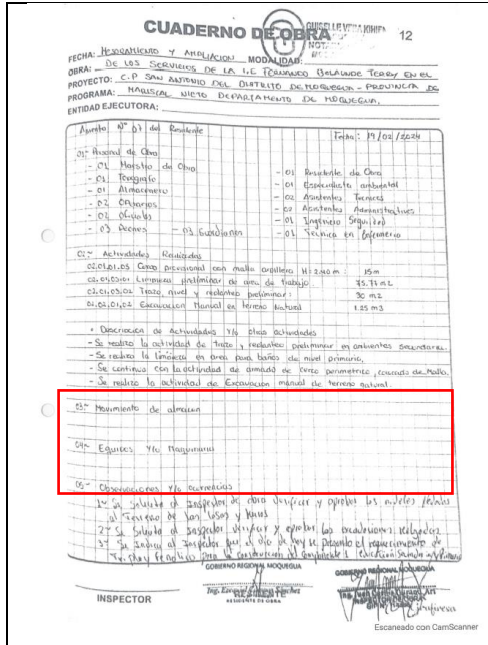 CUADERNO DE OBRA
GUISELLE VERA KIHIEN
12
FECHA: MEJORAMIENTO Y AMPLIACION MODALIDAD:
OBRA: DE LOS SERVICIOS DE LA I.E FERNANDO BELAUNDE TERRY EN EL
PROYECTO: C.P SAN ANTONIO DEL DISTRITO DE MOQUEGUA - PROVINCIA DE
PROGRAMA: MARISCAL NIETO DEPARTAMENTO DE MOQUEGUA.
ENTIDAD EJECUTORA:
Asiento N° 07 del Residente
Fecha: 19/02/2024
01- Personal de Obra
- 01 Maestro de Obra
- 01 Topografo
- 01 Almacenero
- 02 Operarios
- 02 Oficiales
- 03 Peones - 03 Guardianes
- 01 Residente de Obra
- 01 Especialista ambiental
- 02 Asistentes Tecnicos
- 02 Asistentes Administrativos
- 01 Ingeniero Seguridad
- 01 Tecnica en Enfermeria
02- Actividades Realizadas
02.01.01.03 Cerco provisional con malla arpillera H: 2.40 m : 15m
02.01.03.01 Limpieza preliminar de area de trabajo. 75.71 m2
02.01.03.02 Trazo, nivel y replanteo preliminar: 30 m2
02.02.01.02 Excavacion Manual en terreno Natural 1.25 m3
• Descripcion de Actividades Y/o otras actividades
- Se realizo la actividad de trazo y replanteo preliminar en ambientes secundaria.
- Se realizo la limpieza en area para baños de nivel primario,
- Se continuo con la actividad de armado de cerco perimetrico, colocado de malla.
- Se realizo la actividad de Excavación manual de terreno natural.
03- Movimiento de almacen
04- Equipos Y/o Maquinaria
05- Observaciones Y/o ocurrencias
1- Se Solicita al Inspector de obra Verificar y aprobar los niveles
al Terreno de las losas y muros
2- Se Solicita al Inspector Verificar y aprobar las excavaciones
3- Se Indica al Inspector que el dia de hoy se presento el requerimiento de
para la Construccion del Componente 1
GOBIERNO REGIONAL MOQUEGUA
GOBIERNO REGIONAL MOQUEGUA
RESIDENTE DE OBRA
INSPECTOR
Escaneado con CamScanner